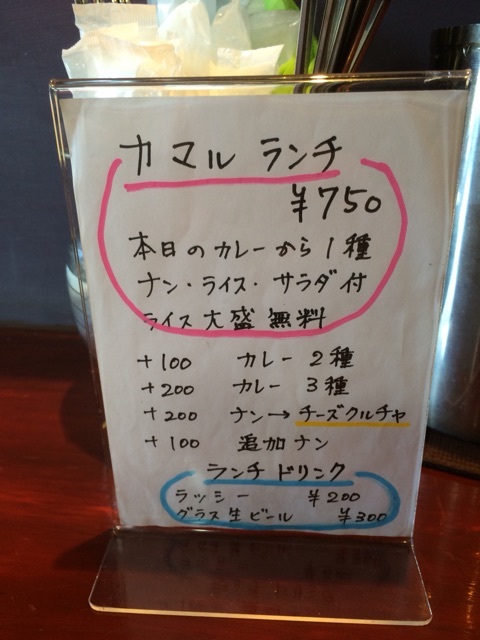 カマル ランチ
¥750
本日のカレーから1種
ナン・ライス・サラダ付
ライス大盛無料
+100 カレー 2種
+200 カレー 3種
+200 ナン→チーズクルチャ
+100 追加ナン
ランチドリンク
ラッシー ¥200
グラス生ビール ¥300